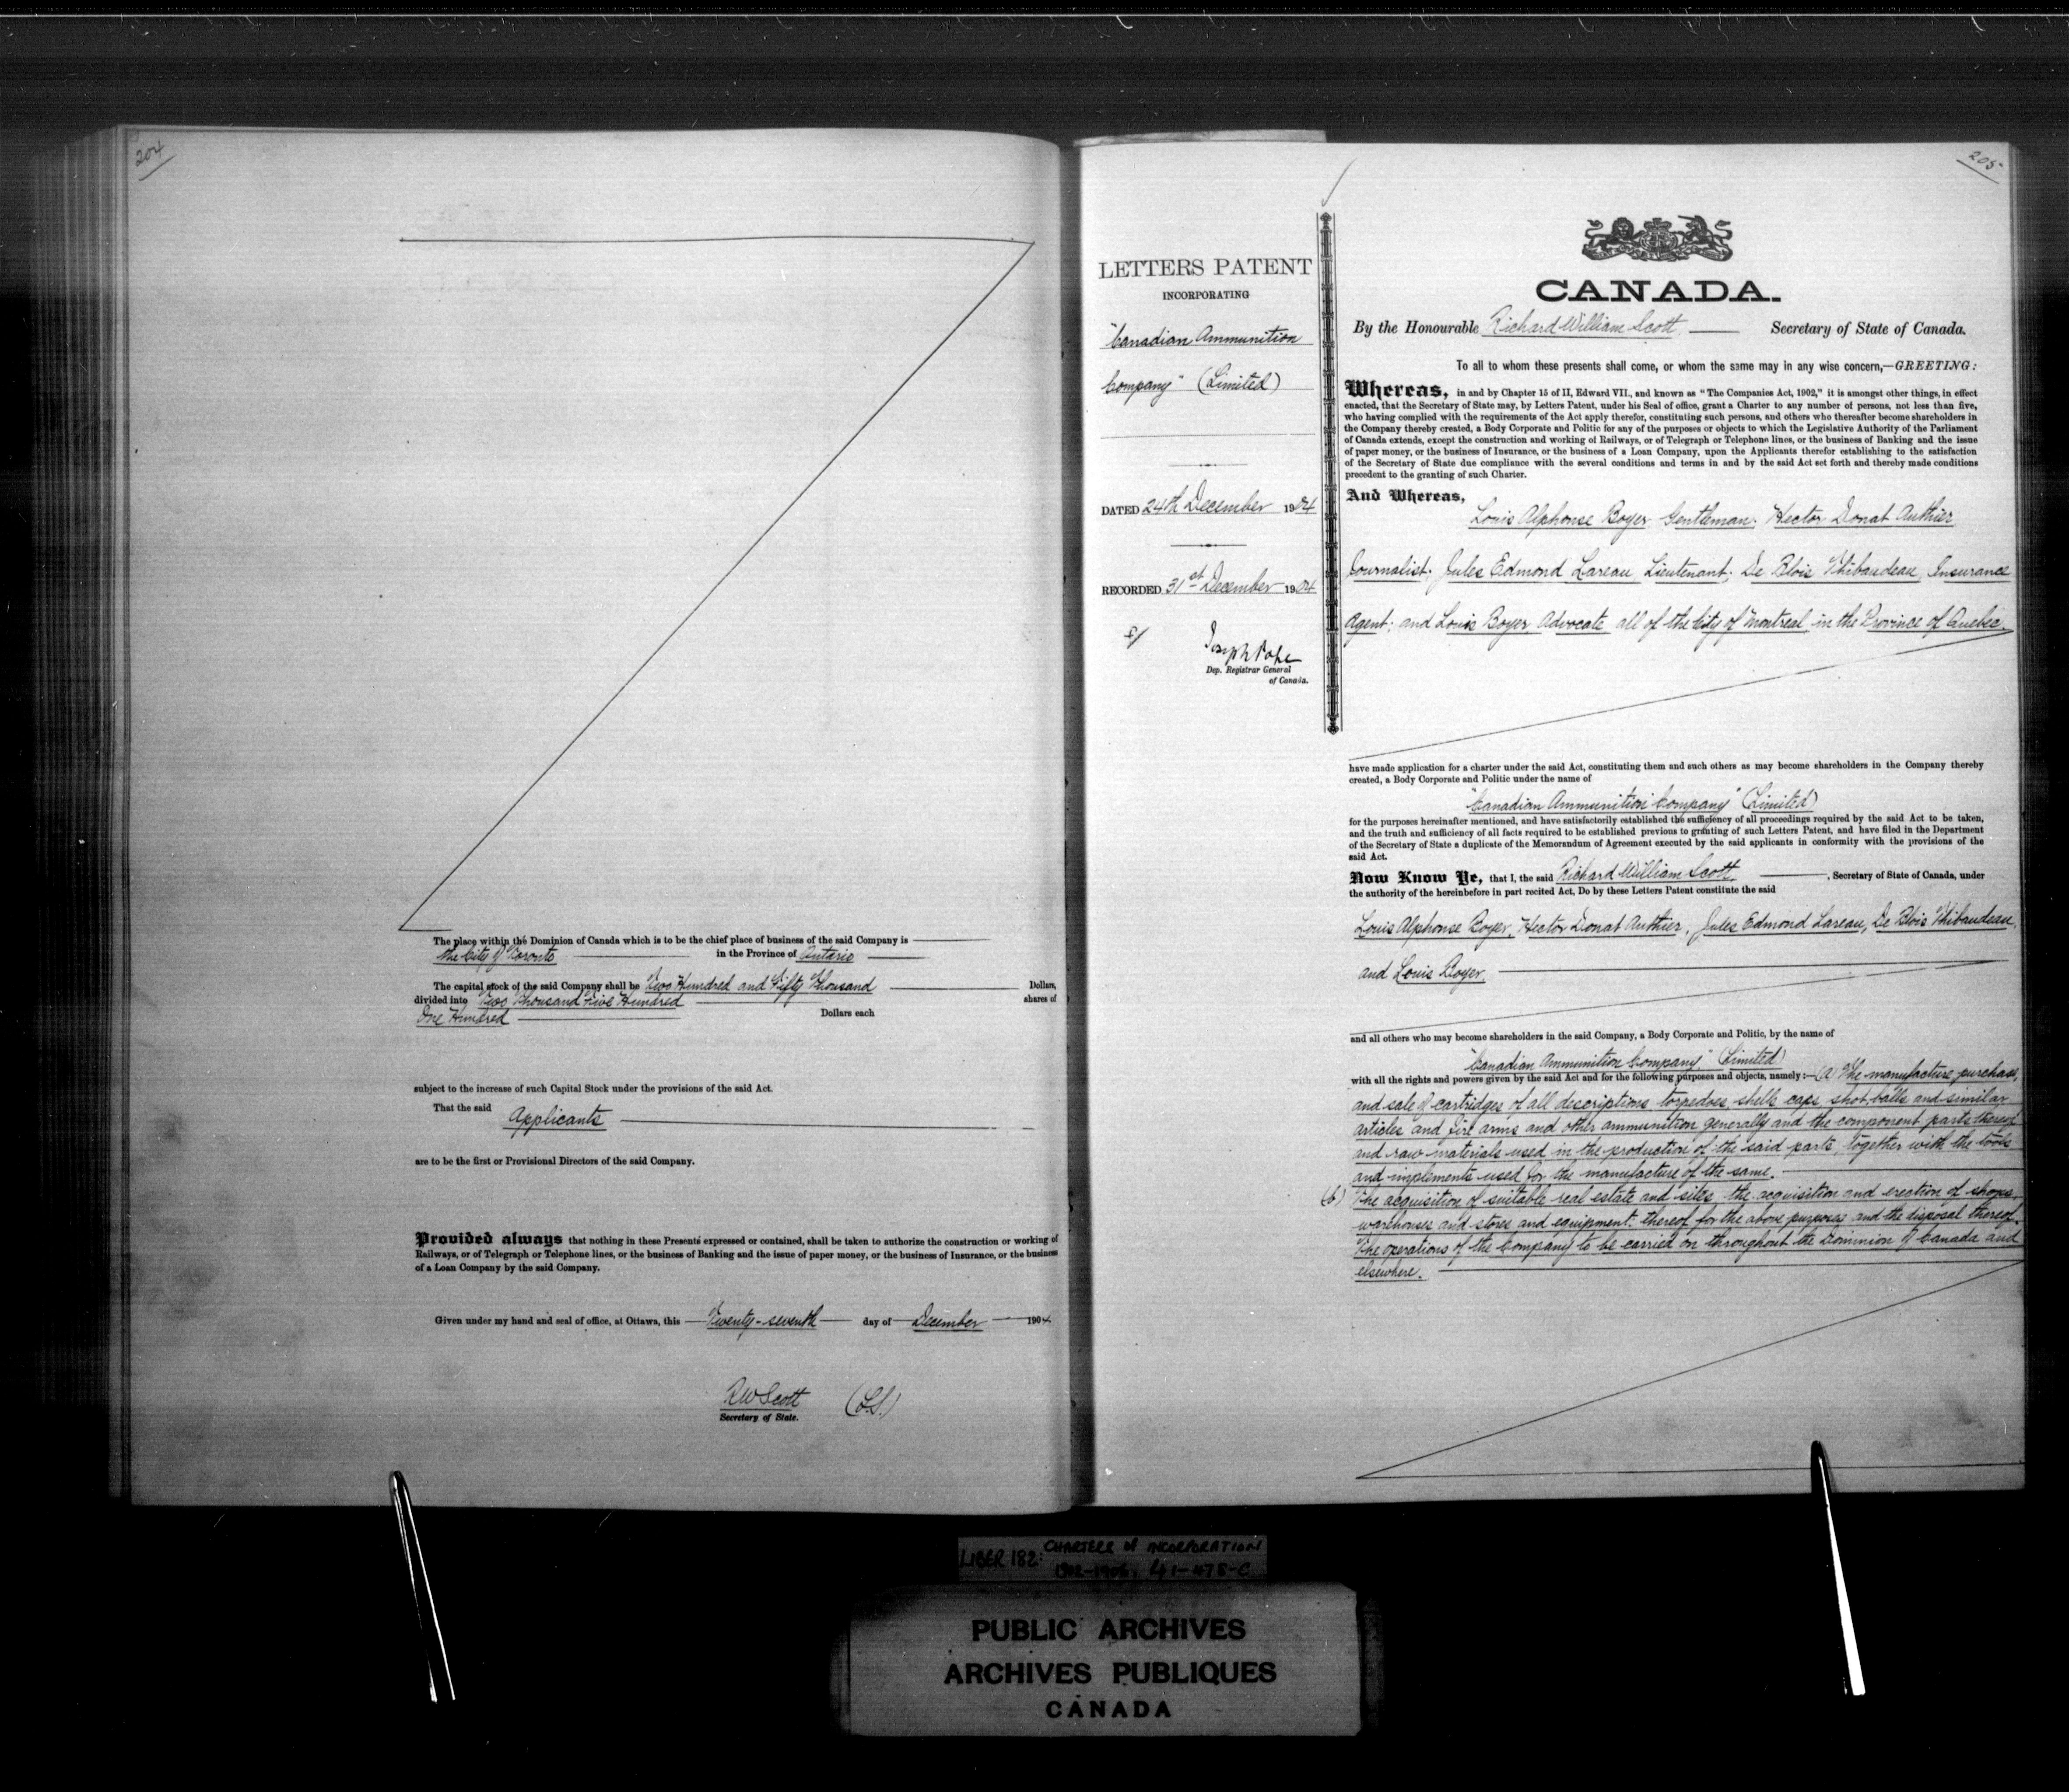 204
The place within the Dominion of Canada which is to be the chief place of business of the said Company is
the City of Toronto in the Province of Ontario
The capital stock of the said Company shall be Two Hundred and Fifty Thousand Dollars,
divided into Two Thousand Five Hundred shares of
One Hundred Dollars each
subject to the increase of such Capital Stock under the provisions of the said Act.
That the said Applicants
are to be the first or Provisional Directors of the said Company.
Provided always that nothing in these Presents expressed or contained, shall be taken to authorize the construction or working of
Railways, or of Telegraph or Telephone lines, or the business of Banking and the issue of paper money, or the business of Insurance, or the business
of a Loan Company by the said Company.
Given under my hand and seal of office, at Ottawa, this Twenty-seventh day of December 1904.
RW Scott (L.S.)
Secretary of State.
205
LETTERS PATENT
INCORPORATING
"Canadian Ammunition
Company" (Limited)
DATED 24th December 1904
RECORDED 31st December 1904
Joseph Pope
Dep. Registrar General
of Canada.
CANADA.
By the Honourable Richard William Scott, Secretary of State of Canada.
To all to whom these presents shall come, or whom the same may in any wise concern,—GREETING:
Whereas, in and by Chapter 15 of II, Edward VII., and known as "The Companies Act, 1902," it is amongst other things, in effect
enacted, that the Secretary of State may, by Letters Patent, under his Seal of office, grant a Charter to any number of persons, not less than five,
who having complied with the requirements of the Act apply therefor, constituting such persons, and others who thereafter become shareholders in
the Company thereby created, a Body Corporate and Politic for any of the purposes or objects to which the Legislative Authority of the Parliament
of Canada extends, except the construction and working of Railways, or of Telegraph or Telephone lines, or the business of Banking and the issue
of paper money, or the business of Insurance, or the business of a Loan Company, upon the Applicants therefor establishing to the satisfaction
of the Secretary of State due compliance with the several conditions and terms in and by the said Act set forth and thereby made conditions
precedent to the granting of such Charter.
And Whereas,
Louis Alphonse Boyer Gentleman; Hector Donat Authier
Journalist; Jules Edmond Lareau Lieutenant; De Blois Thibaudeau, Insurance
Agent; and Louis Boyer, Advocate all of the City of Montreal, in the Province of Quebec.
have made application for a charter under the said Act, constituting them and such others as may become shareholders in the Company thereby
created, a Body Corporate and Politic under the name of
"Canadian Ammunition Company" (Limited)
for the purposes hereinafter mentioned, and have satisfactorily established the sufficiency of all proceedings required by the said Act to be taken,
and the truth and sufficiency of all facts required to be established previous to granting of such Letters Patent, and have filed in the Department
of the Secretary of State a duplicate of the Memorandum of Agreement executed by the said applicants in conformity with the provisions of the
said Act.
Now Know Ye, that I, the said Richard William Scott, Secretary of State of Canada, under
the authority of the hereinbefore in part recited Act, Do by these Letters Patent constitute the said
Louis Alphonse Boyer, Hector Donat Authier, Jules Edmond Lareau, De Blois Thibaudeau,
and Louis Boyer,
and all others who may become shareholders in the said Company, a Body Corporate and Politic, by the name of
"Canadian Ammunition Company" (Limited)
with all the rights and powers given by the said Act and for the following purposes and objects, namely:—(a) The manufacture purchase,
and sale of cartridges of all descriptions torpedoes, shells caps, shot balls and similar
articles and fire arms and other ammunition generally and the component parts thereof
and raw materials used in the production of the said parts, together with the tools
and implements used for the manufacture of the same.
(b) The acquisition of suitable real estate and sites, the acquisition and erection of shops,
warehouses and stores and equipment thereof for the above purposes and the disposal thereof.
The operations of the Company to be carried on throughout the Dominion of Canada and
elsewhere.
LIBER 182: CHARTERS of INCORPORATION
1902-1906; 41-478-C
PUBLIC ARCHIVES
ARCHIVES PUBLIQUES
CANADA